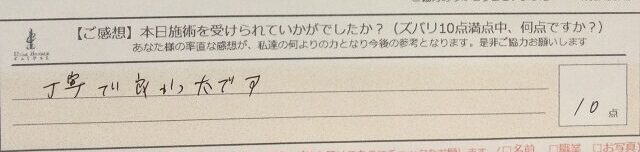 【ご感想】本日施術を受けられていかがでしたか？（ズバリ10点満点中、何点ですか？）
あなた様の率直な感想が、私達の何よりの力となり今後の参考となります。是非ご協力お願いします
丁寧で良かったです
10点
□名前 □職業 □お写真